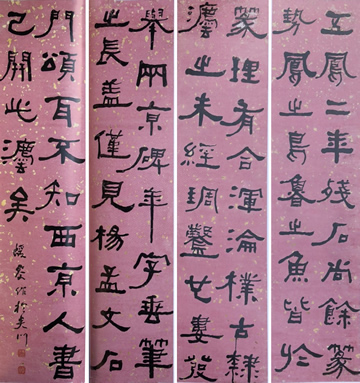 五鳳二年殘石尚餘篆
勢鳳之鳥魯之魚皆於
篆理有合渾淪樸古隸
灋之未經琱鑿也婁發
舉兩京碑年字垂筆
之長蓋僅見楊孟文石
門頌耳不知西京人書
已開此灋矣
於吳門